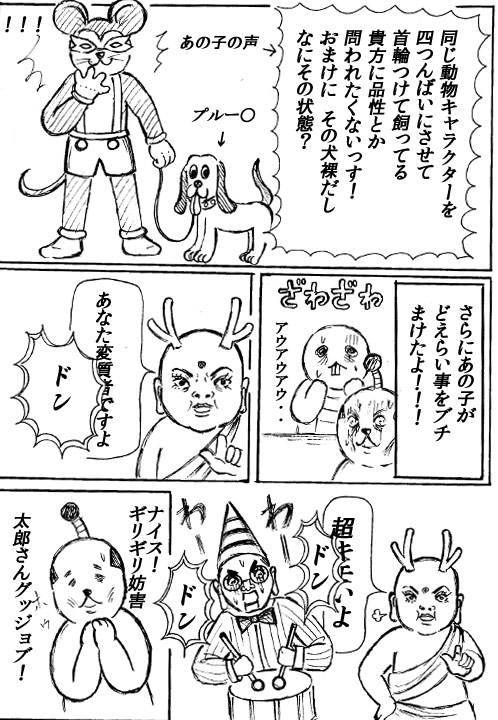 同じ動物キャラクターを
四つんばいにさせて
首輪つけて飼ってる
貴方に品性とか
問われたくないっす!
おまけに その犬裸だし
なにその状態?
あの子の声→
プルー〇
↓
!!!
さらにあの子が
どえらい事をブチ
まけたよ!!!
ざわざわ
アウアウアウ・・
あなた変質者ですよ
ドン
超キモいよ
ドン
わー
わー
ドン
ナイス!
ギリギリ妨害
太郎さんグッジョブ!
ホッ